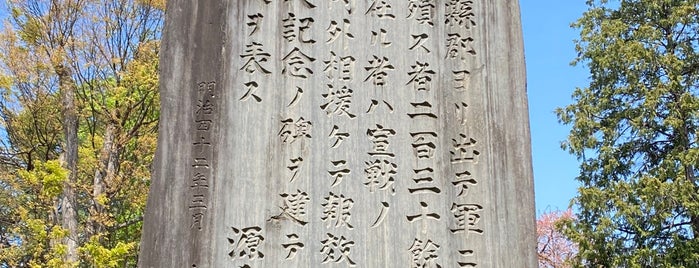 縣郡ヨリ出テ軍ニ
殞ス者二百三十餘
在ル者ハ宣戰ノ
内外相援ケテ報效
記念ノ碑ヲ建テ
ヲ表ス 源
明治四十二年三月